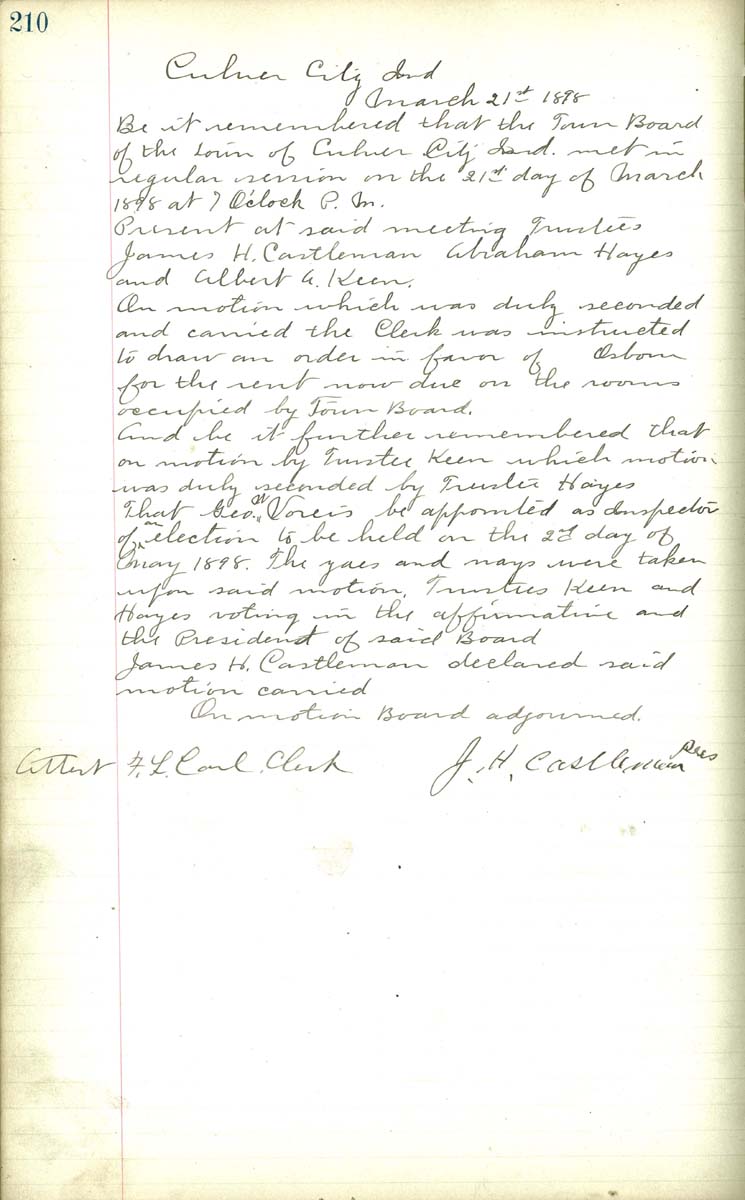 210
Culver City Ind
March 21st 1898
Be it remembered that the Town Board
of the town of Culver City Ind. met in
regular session on the 21st day of March
1898 at 7 O'clock P. M.
Present at said meeting Trustees
James H. Castleman Abraham Hayes
and Albert A. Keen.
On motion which was duly seconded
and carried the Clerk was instructed
to draw an order in favor of Osborn
for the rent now due on the rooms
occupied by Town Board.
And be it further remembered that
on motion by Trustee Keen which motion
was duly seconded by Trustee Hayes
That Geo. W. Voreis be appointed as Inspector
of an election to be held on the 2d day of
May 1898. The yaes and nays were taken
upon said motion, Trustees Keen and
Hayes voting in the affirmative and
the President of said Board
James H. Castleman declared said
motion carried
On motion Board adjourned.
Attest F. L. Carl, Clerk J. H. Castleman Pres